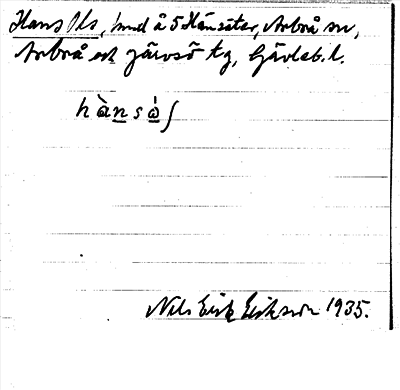 Hans Ols, hmd å 5 Hänsätter, Arbrå sn,
Arbrå och Järvsö tg, Gävleb. l.
hànsáʃ
Nils Erik Erikson 1935.